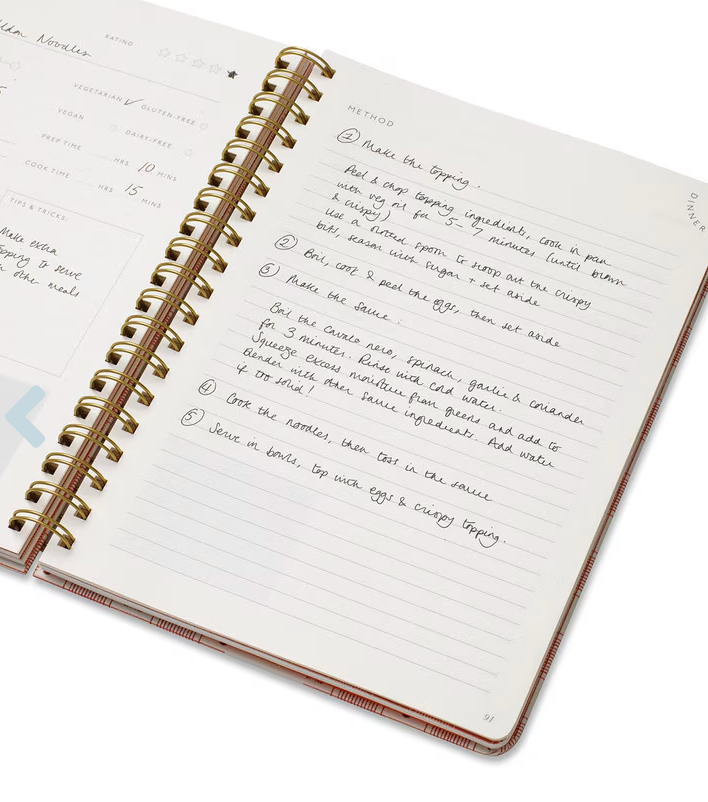 Noodles
RATING
VEGETARIAN ✓ GLUTEN-FREE
VEGAN DAIRY-FREE
PREP TIME HRS 10 MINS
COOK TIME HRS 15 MINS
TIPS & TRICKS:
Make extra
topping to serve
other meals
METHOD
① Make the topping.
Peel & chop topping ingredients, cook in pan
with veg oil for 5-7 minutes (until brown
& crispy)
Use a slotted spoon to scoop out the crispy
bits, season with sugar + set aside
② Boil, cook & peel the eggs, then set aside
③ Make the sauce.
Boil the Cavolo nero, spinach, garlic & coriander
for 3 minutes. Rinse with cold water.
Squeeze excess moisture from greens and add to
blender with other sauce ingredients. Add water
if too solid!
④ Cook the noodles, then toss in the sauce
⑤ Serve in bowls, top with eggs & crispy topping.
DINNER
91